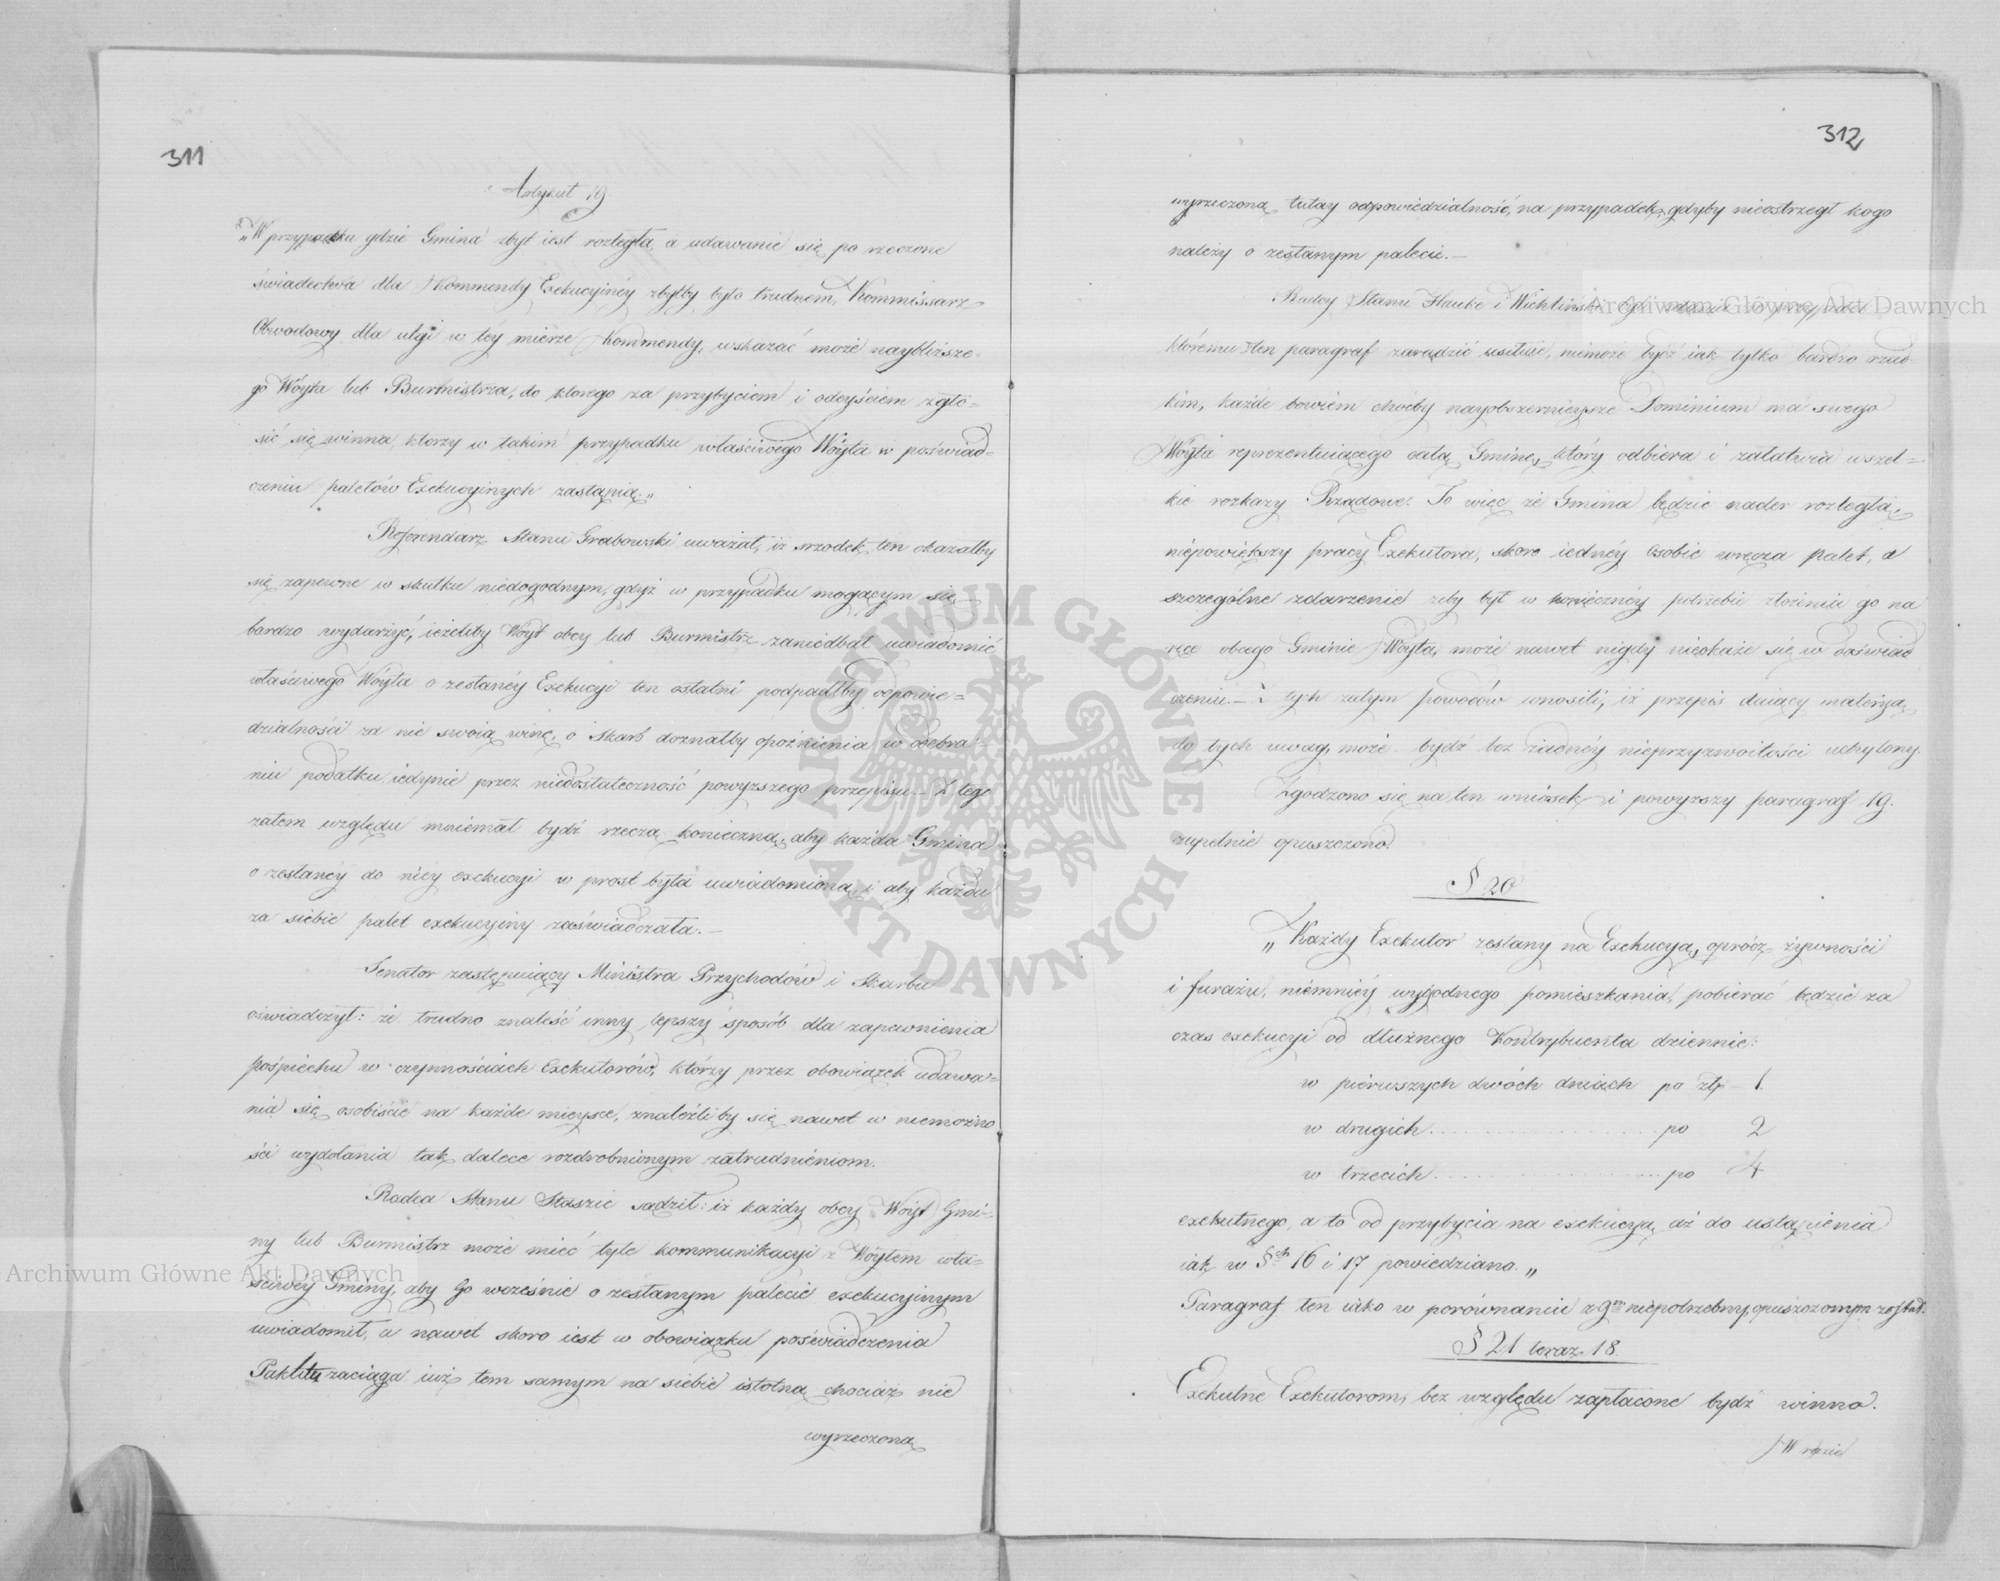 311
Artykuł 19.
„W przypadku gdzie Gmina zbyt iest rozległa, a udawanie się po rzeczone
świadectwa dla Kommendy Exekucyinéy zbytby było trudnem, Kommissarz
Obwodowy dla ulgi w tey mierze Kommendy, wskazać może naybliższe-
go Wóyta lub Burmistrza, do ktorego za przybyciem i odeyściem zgło-
sić się winna, ktorzy w takim przypadku właściwego Wóyta w poświad-
czeniu paletów Exekucyinych zastąpią.„
Referendarz Stanu Grabowski uważał, iż srzodek ten okazałby
się zapewne w skutku niedogodnym, gdyż w przypadku mogącym się
bardzo wydarzyć, ieżeliby Woyt obcy lub Burmistrz zaniedbał uwiadomić
właściwego Wóyta o zesłanéy Exekucyi ten ostatni podpadłby odpowie-
dzialności za nie swoią winę, a Skarb doznałby opoźnienia w odebra-
niu podatku iedynie przez niedostateczność powyzszego przepisu.- Z tego
zatem względu mniemał bydź rzeczą konieczną, aby każda Gmina
o zesłanéy do niéy exekucyi w prost była uwiadomiona, i aby każda
za siebie palet exekucyiny zaświadczała.-
Senator zastępuiący Ministra Przychodów i Skarbu
oświadczył: że trudno znaleść inny lepszy sposób dla zapewnienia
pośpiechu w czynnościach Exekutorów, którzy przez obowiązek udawa-
nia się osobiście na każde mieysce, znaleźliby się nawet w niemożno
ści wydołania tak dalece rozdrobnionym zatrudnieniom.
Radca Stanu Staszic sądził: iż każdy obcy Wóyt Gmi-
ny lub Burmistrz może mieć tyle kommunikacyi z Wóytem wła-
ściwéy Gminy, aby Go wcześnie o zesłanym palecie exekucyinym
uwiadomił, a nawet skoro iest w obowiązku poświadczenia
zaciąga iuż tem samym na siebie istotną chociaż nie
wyrzeczoną
312
wyrzeczoną tutay odpowiedzialność, na przypadek, gdyby nieostrzegł kogo
należy o zesłanym palecie.-
Radcy Stanu Hauke i Wichliński
któremu ten paragraf zaradzić usiłuie, niemoże bydź iak tylko bardzo rzad-
kim, każde bowiem choćby nayobszernieysze Dominium ma swego
Wóyta reprezentuiącego całą Gminę, który odbiera i załatwia wszel-
kie rozkazy Rządowe. To więc że Gmina będzie nader rozległa,
niepowiększy pracy Exekutora, skoro iednéy osobie wręcza palet, a
szczególne zdarzenie żeby był w koniecznéy potrzebie złożenia go na
ręce obcego Gminie Wóyta, może nawet nigdy nieokaże się w doświad
czeniu.- Z tych zatym powodów wnosili, iż przepis daiący materyą
do tych uwag, może bydź bez żadnéy nieprzyzwoitości uchylony.
Zgodzono się na ten wniosek, i powyzszy paragraf 19.
zupełnie opuszczono.
§ 20
„Każdy Exekutor zesłany na Exekucyą, oprócz żywności
i furażu, niemniéy wygodnego pomieszkania, pobierać będzie za
czas exekucyi od dłużnego Kontrybuenta dziennie:
w pierwszych dwóch dniach po złp. - 1
w drugich ... po 2
w trzecich ... po 4
exekutnego, a to od przybycia na exekucyą, aż do ustąpienia
iak w § 16 i 17 powiedziano.„
Paragraf ten iako w porównaniu z 9 niepotrzebny opuszczonym został.
§ 21 teraz 18.
Exekutne Exekutorom, bez względu zapłacone bydź winno.
W razie
Archiwum Główne Akt Dawnych
Archiwum Główne Akt Dawnych
ARCHIWUM GŁÓWNE AKT DAWNYCH